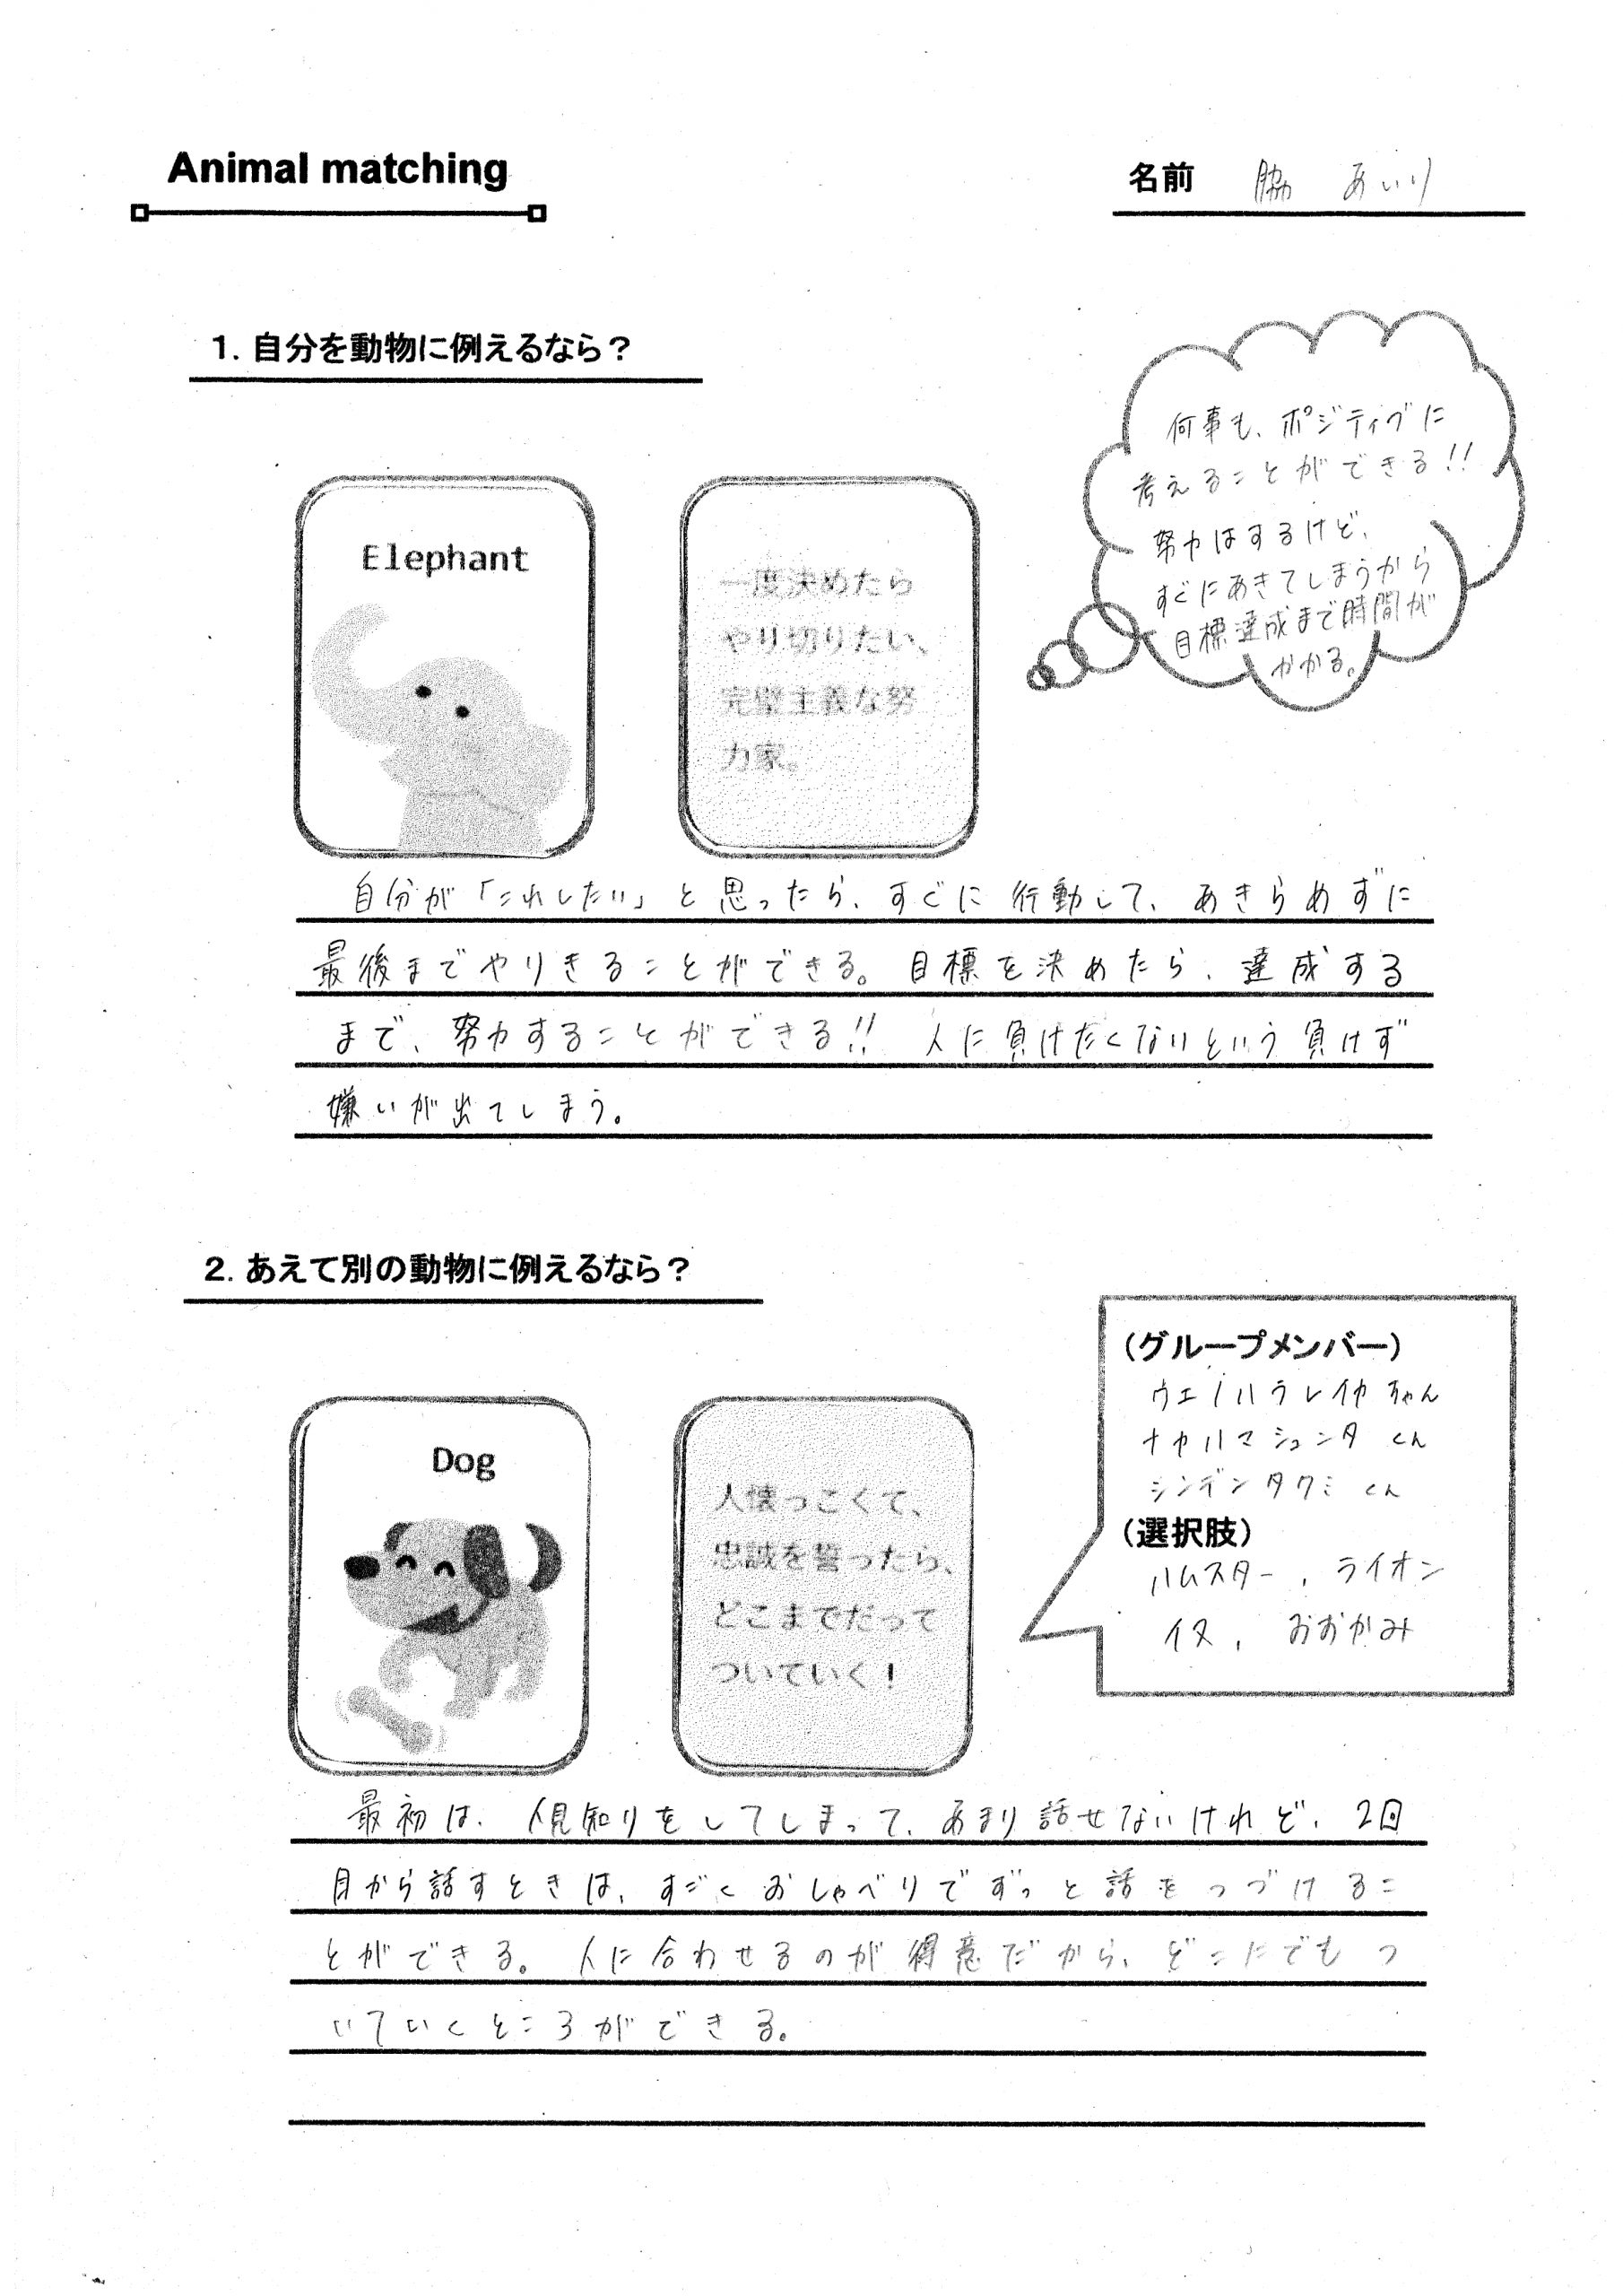 Animal matching
名前 脇 あいり
1. 自分を動物に例えるなら？
何事も、ポジティブに
考えることができる!!
努力はするけど、
すぐにあきてしまうから
目標達成まで時間が
かかる。
Elephant
一度決めたら
やり切りたい、
完璧主義な努
力家。
自分が「これしたい」と思ったら、すぐに行動して、あきらめずに
最後までやりきることができる。目標を決めたら、達成する
まで、努力することができる!! 人に負けたくないという負けず
嫌いが出てしまう。
2. あえて別の動物に例えるなら？
（グループメンバー）
ウエノハラレイカちゃん
ナカハマシュンタくん
シンデンタクミくん
（選択肢）
ハムスター、ライオン
イヌ、おおかみ
Dog
人懐っこくて、
忠誠を誓ったら、
どこまでだって
ついていく！
最初は、人見知りをしてしまって、あまり話せないけれど、2回
目から話すときは、すごくおしゃべりでずっと話をつづけるこ
とができる。人に合わせるのが得意だから、どこにでもつ
いていくところができる。